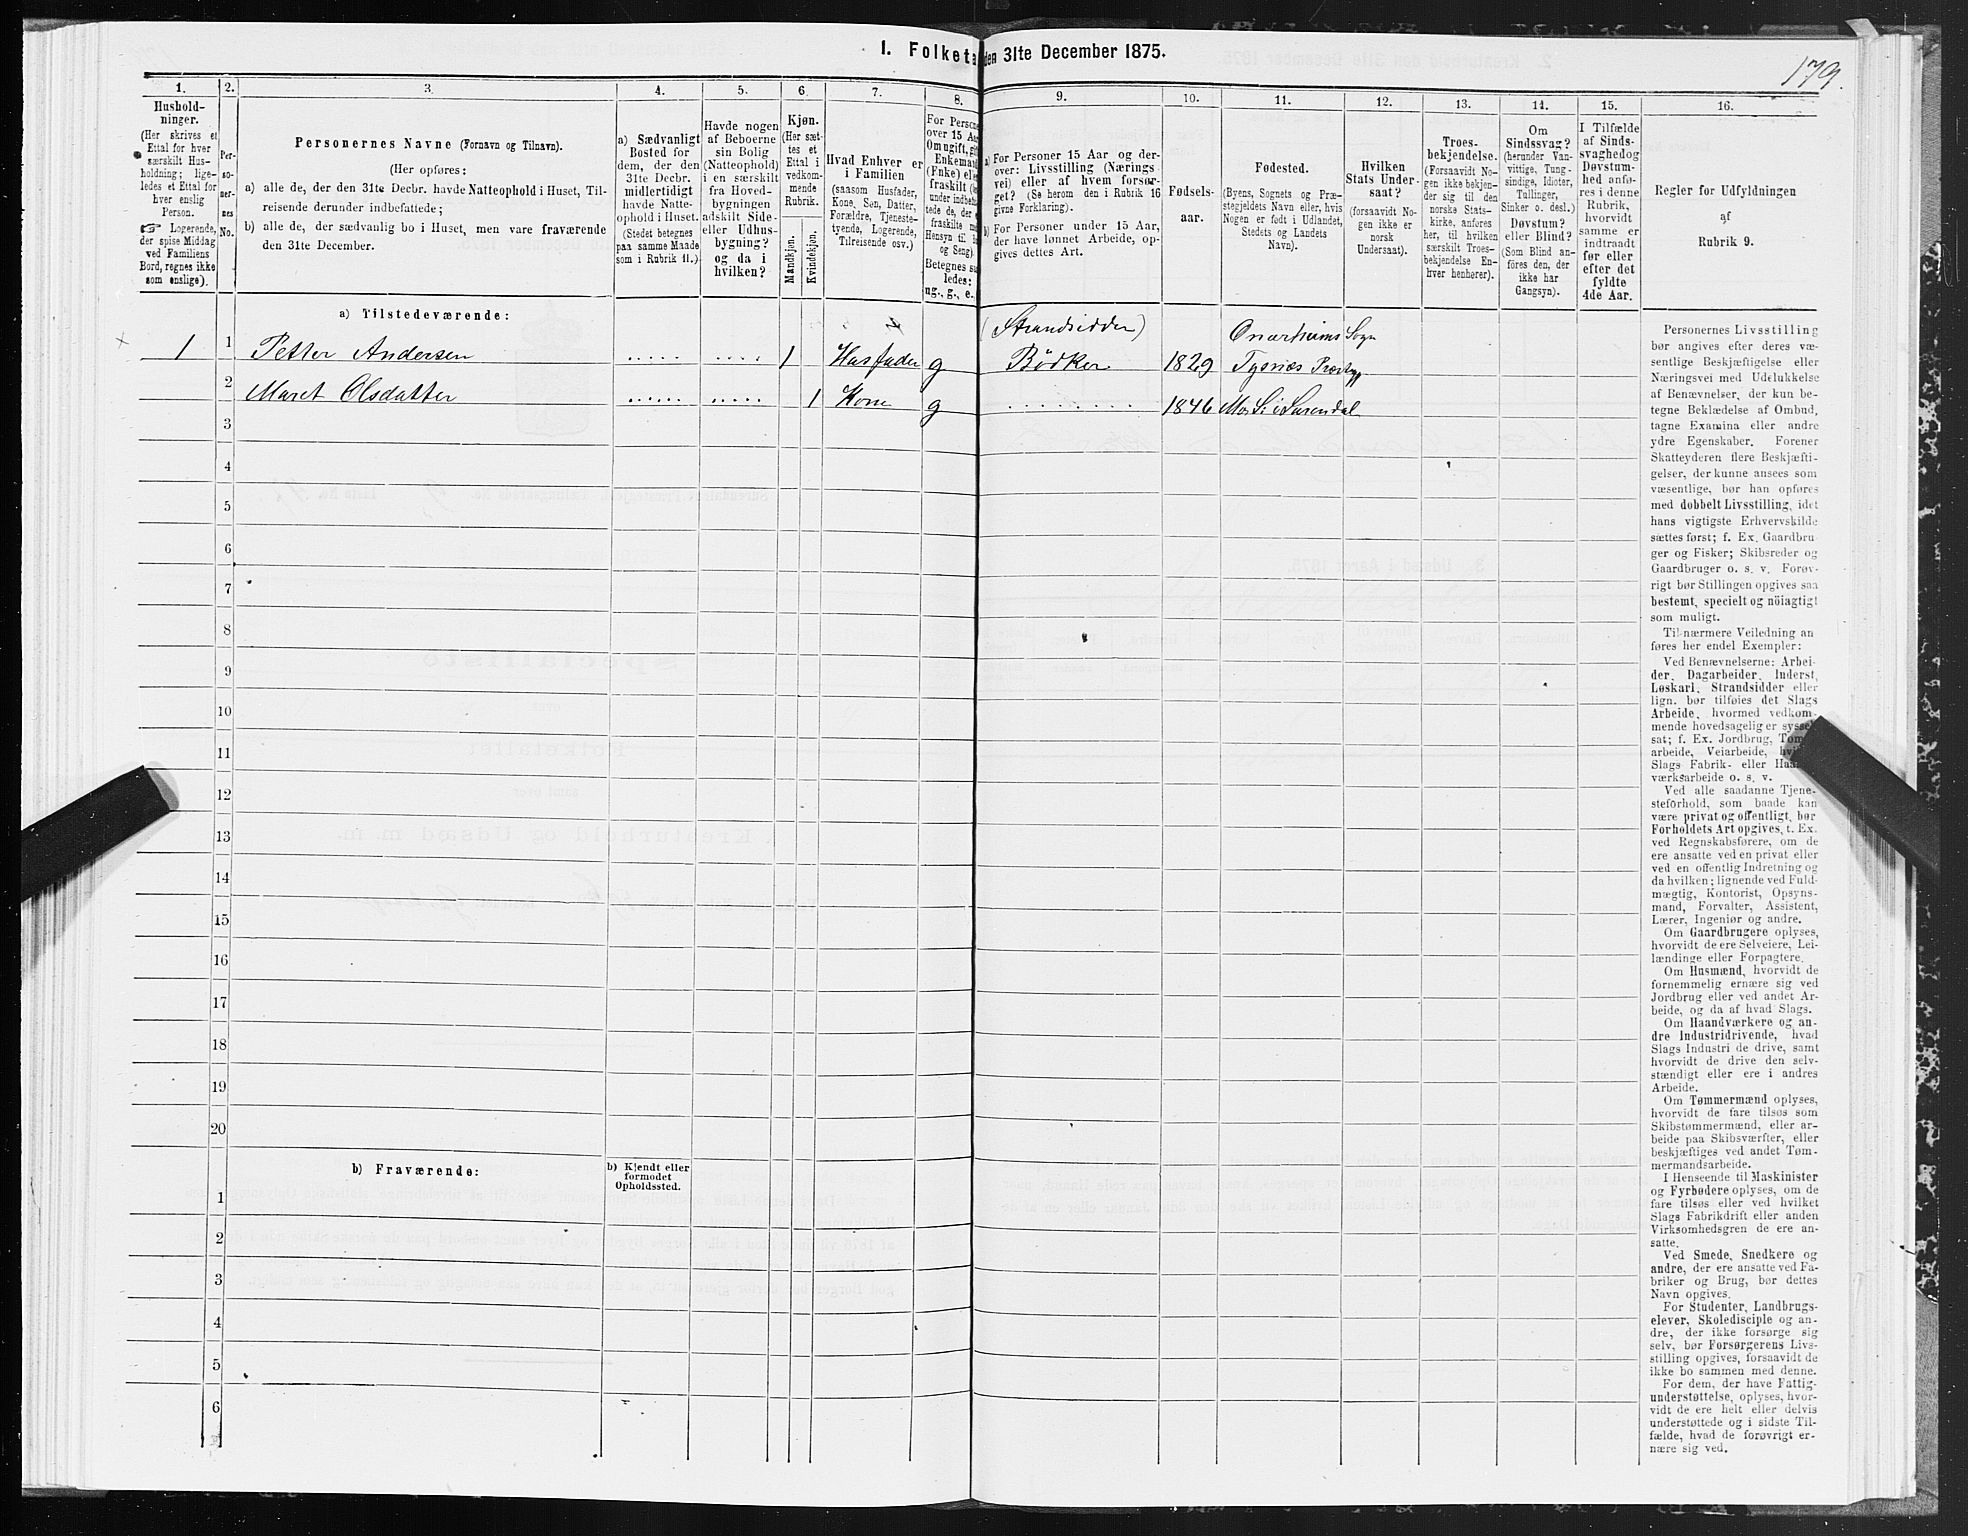 1. Folketa den 31te December 1875.
179.
1.
2.
3.
4.
5.
6.
7.
8.
9.
10.
11.
12.
13.
14.
15.
16.
Hushold-
ninger.
(Her skrives et
Ettal for hver
særskilt Hus-
holdning; lige-
ledes et Ettal for
hver enslig
Person.
☞ Logerende,
der spise Middag
ved Familiens
Bord, regnes ikke
som enslige).
Per-
so-
ner-
nes
No.
Personernes Navne (Fornavn og Tilnavn).
(Her opføres:
a) alle de, der den 31te Decbr. havde Natteophold i Huset, Til-
reisende derunder indbefattede;
b) alle de, der sædvanlig bo i Huset, men vare fraværende
den 31te December.
a) Sædvanligt
Bosted for
dem, der den
31te Decbr.
midlertidigt
havde Natte-
ophold i Huset.
(Stedet betegnes
paa samme Maade
som i Rubrik 11.)
Havde nogen
af Beboerne
sin Bolig
(Natteophold)
i en særskilt
fra Hoved-
bygningen
adskilt Side-
eller Udhus-
bygning?
og da i
hvilken?
Kjøn.
(Her sæt-
tes et
Ettal i
vedkom-
mende
Rubrik.
Mandkjøn.
Kvindekjøn.
Hvad Enhver er
i Familien
(saasom Husfader,
Kone, Søn, Datter,
Forældre, Tjeneste-
tyende, Logerende,
Tilreisende osv.)
For Persone
over 15 Aa
Om ugift, gif
Enkemand
(Enke) ell
fraskilt (
under indbef
tede de, der
fraskilte
Hensyn til
og Seng).
Betegnes
ledes:
ug., g., e.,
a) For Personer 15 Aar og der-
over: Livsstilling (Nærings-
vei) eller af hvem forsør-
get? (Se herom den i Rubrik 16
givne Forklaring).
b) For Personer under 15 Aar,
der have lønnet Arbeide, op-
gives dettes Art.
Fødsels-
aar.
Fødested.
(Byens, Sognets og Præ-
stegjeldets Navn eller, hvis
Nogen er født i Udlandet,
Stedets og Landets
Navn).
Hvilken
Stats Under-
saat?
(forsaavidt No-
gen ikke er
norsk
Undersaat).
Troes-
bekjendelse.
(Forsaavidt No-
gen ikke bekjen-
der sig til den
norske Stats-
kirke, anføres
her, til hvilken
særskilt Troes-
bekjendelse En-
hver henhører).
Om
Sindssvag?
(herunder Van-
vittige, Tung-
sindige, Idioter,
Tullinger,
Sinker o. desl.)
Døvstum?
eller Blind?
(Som Blind an-
føres den, der
ikke har
Gangsyn).
I Tilfælde
af Sinds-
svaghed og
Døvstum-
hed anfø-
res i denne
Rubrik,
hvorvidt
samme er
indtraadt
før eller
efter det
fyldte
4de Aar.
Regler for Udfyldningen
af
Rubrik 9.
a) Tilstedeværende:
(Strandsidder) Onarheims Sogn
1 1 Petter Andersen ..... .... 1 Husfader g Bødker 1829 Tysnæs
2 Maret Olsdatter ...... ..... 1 Kone g ........ 1846 Mo S. i Surendal
3
4
5
6
7
8
9
10
11
12
13
14
15
16
17
18
19
20
b) Fraværende:
b) Kjendt eller
formodet
Opholdssted.
1
2
3
4
5
6
Personernes Livsstilling
bør angives efter deres væ-
sentlige Beskjæftigelse eller
Næringsvei med Udelukkelse
af Benævnelser, der kun be-
tegne Beklædelse af Ombud,
tagne Examina eller andre
ydre Egenskaber. Forener
Skatteyderen flere Beskjæfti-
gelser, der kunne ansees som
væsentlige, bør han opføres
med dobbelt Livsstilling, idet
hans vigtigste Erhvervskilde
sættes først; f. Ex. Gaardbru-
ger og Fisker; Skibsreder og
Gaardbruger o. s. v. Forøv-
rigt bør Stillingen opgives saa
bestemt, specielt og nöiagtigt
som muligt.
Til nærmere Veiledning an
føres her endel Exempler:
Ved Benævnelserne: Arbei-
der, Dagarbeider, Inderst,
Løskarl, Strandsidder eller
lign. bør tilføies det Slags
Arbeide, hvormed vedkom-
mende hovedsagelig er syssel-
sat; f. Ex. Jordbrug, Tøm
arbeide, Veiarbeide, hvi
Slags Fabrik- eller Haa
værksarbeide o. s. v.
Ved alle saadanne Tjene-
steforhold, som baade kan
være privat og offentligt, bør
Forholdets Art opgives, t. Ex.
ved Regnskabsførere, om de
ere ansatte ved en privat eller
ved en offentlig Indretning og
da hvilken; lignende ved Fuld-
mægtig, Kontorist, Opsyns-
mand, Forvalter, Assistent,
Lærer, Ingeniør og andre.
Om Gaardbrugere oplyses,
hvorvidt de ere Selveiere, Lei-
lændinge eller Forpagtere.
Om Husmænd, hvorvidt de
fornemmelig ernære sig ved
Jordbrug eller ved andet Ar-
beide, og da af hvad Slags.
Om Haandværkere og an-
dre Industridrivende, hvad
Slags Industri de drive, samt
hvorvidt de drive den selv-
stændigt eller ere i andres
Arbeide.
Om Tømmermænd oplyses,
hvorvidt de fare tilsøs som
Skibstømmermænd, eller ar-
beide paa Skibsværfter, eller
beskjæftiges ved andet Tøm-
mermandsarbeide.
I Henseende til Maskinister
og Fyrbødere oplyses, om de
fare tilsøs eller ved hvilket
Slags Fabrikdrift eller anden
Virksomhedsgren de ere an-
satte.
Ved Smede, Snedkere og
andre, der ere ansatte ved Fa-
briker og Brug, bør dettes
Navn opgives.
For Studenter, Landbrugs-
elever, Skoledisciple og an-
dre, der ikke forsørge sig
selv, bør Forsørgerens Livs-
stilling opgives, forsaavidt de
ikke bo sammen med denne.
For dem, der have Fattig-
understøttelse, oplyses, hvor-
vidt de ere helt eller delvis
understøttede og i sidste Til-
fælde, hvad de forøvrigt er-
nære sig ved.